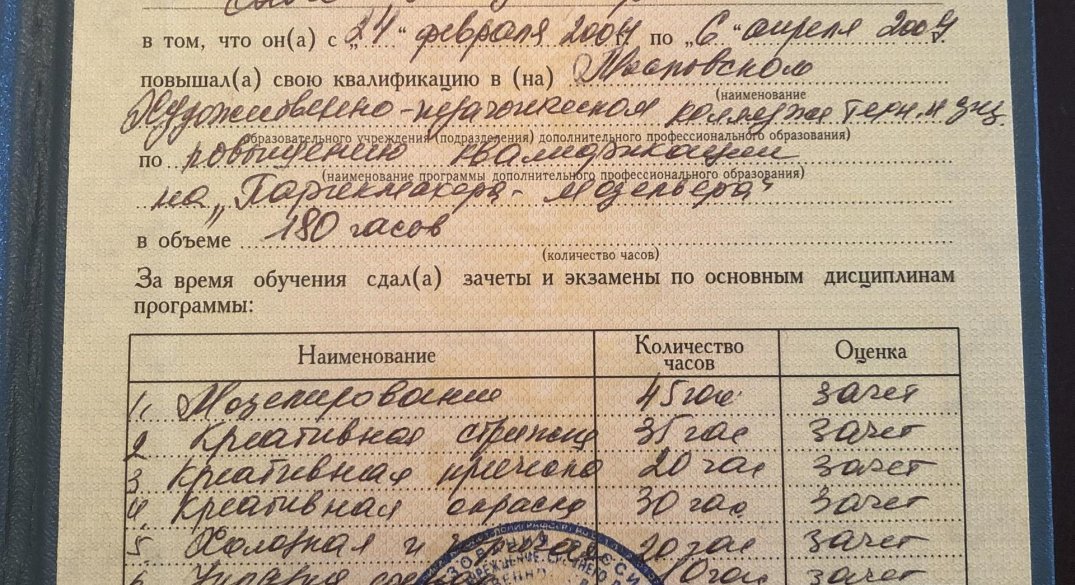 в том, что он(а) с „24“ февраля 2009 по „6“ апреля 2009
повышал(а) свою квалификацию в (на) Московском
(наименование
Художественно-педагогическом колледже техн. и диз.
образовательного учреждения (подразделения) дополнительного профессионального образования)
по повышению квалификации
(наименование программы дополнительного профессионального образования)
на „Парикмахера-модельера“
в объеме 180 часов
(количество часов)
За время обучения сдал(а) зачеты и экзамены по основным дисциплинам
программы:
Наименование Количество часов Оценка
1. Моделирование 45 час зачет
2 Креативная стрижка 35 час зачет
3. Креативная прическа 20 час зачет
4. Креативная окраска 30 час зачет
5. Холодная и 20 час зачет
6. 10 час зачет